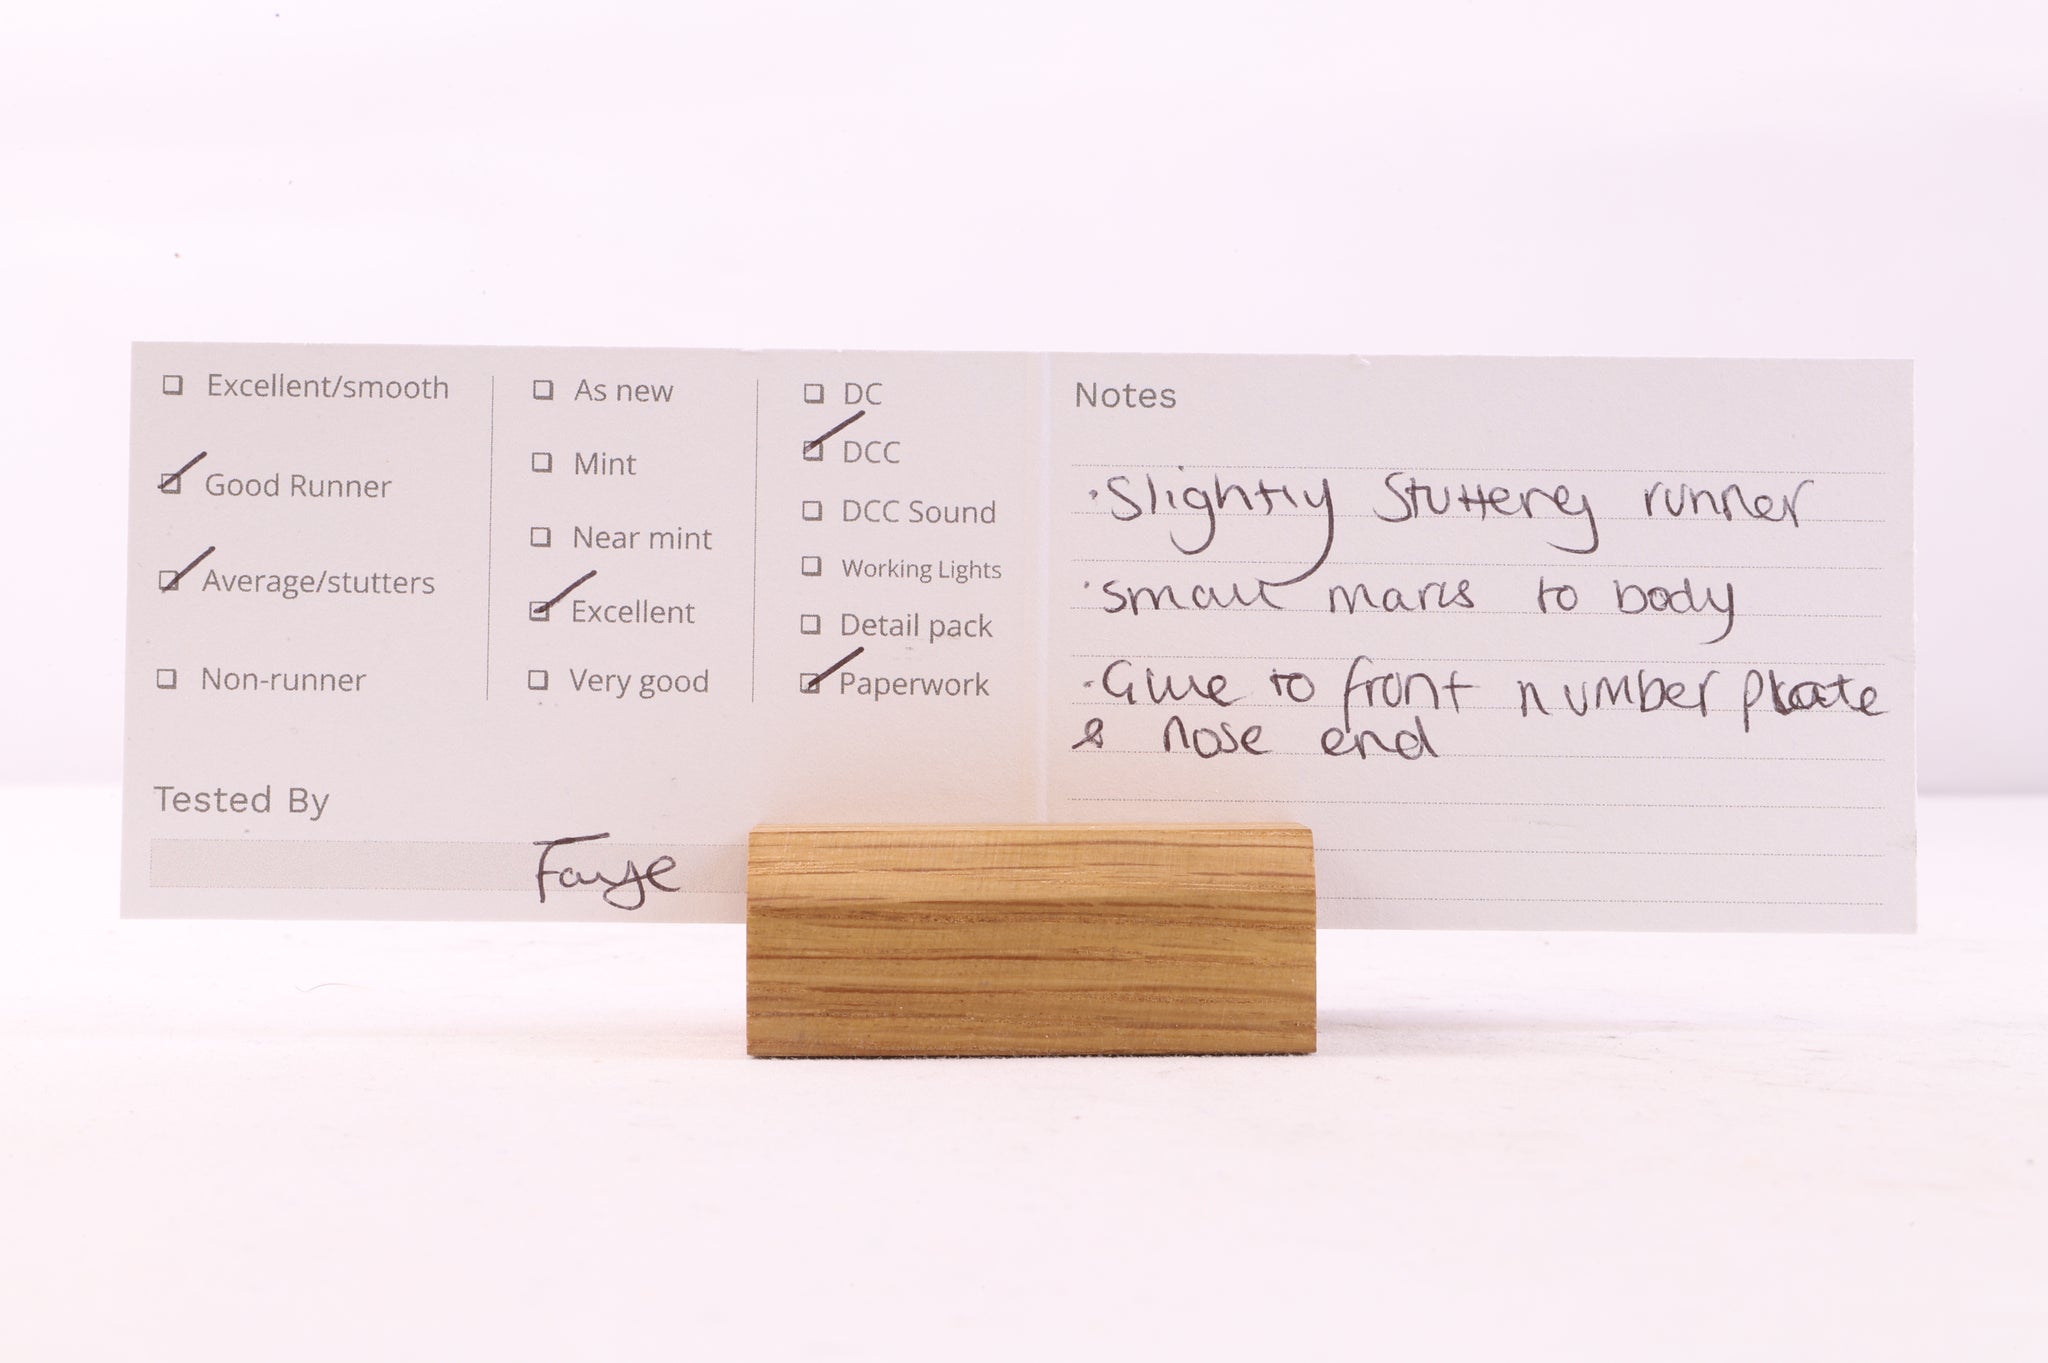 Excellent/smooth
Good Runner
Average/stutters
Non-runner
As new
Mint
Near mint
Excellent
Very good
DC
DCC
DCC Sound
Working Lights
Detail pack
Paperwork
Tested By
Faye
Notes
· Slightly stuttery runner
· small marks to body
· Glue to front number plate
& nose end